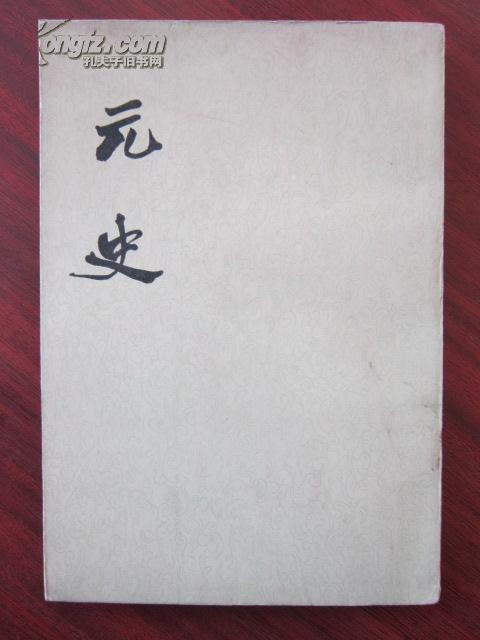 Kongfz.com
孔夫子旧书网
元史